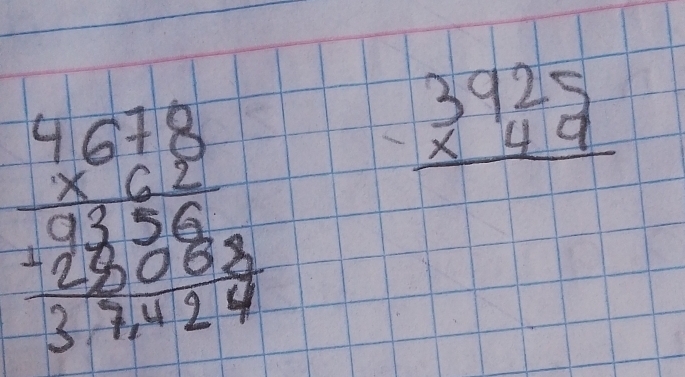 4678
x 62
9356
+28068
37,424
3925
x 49